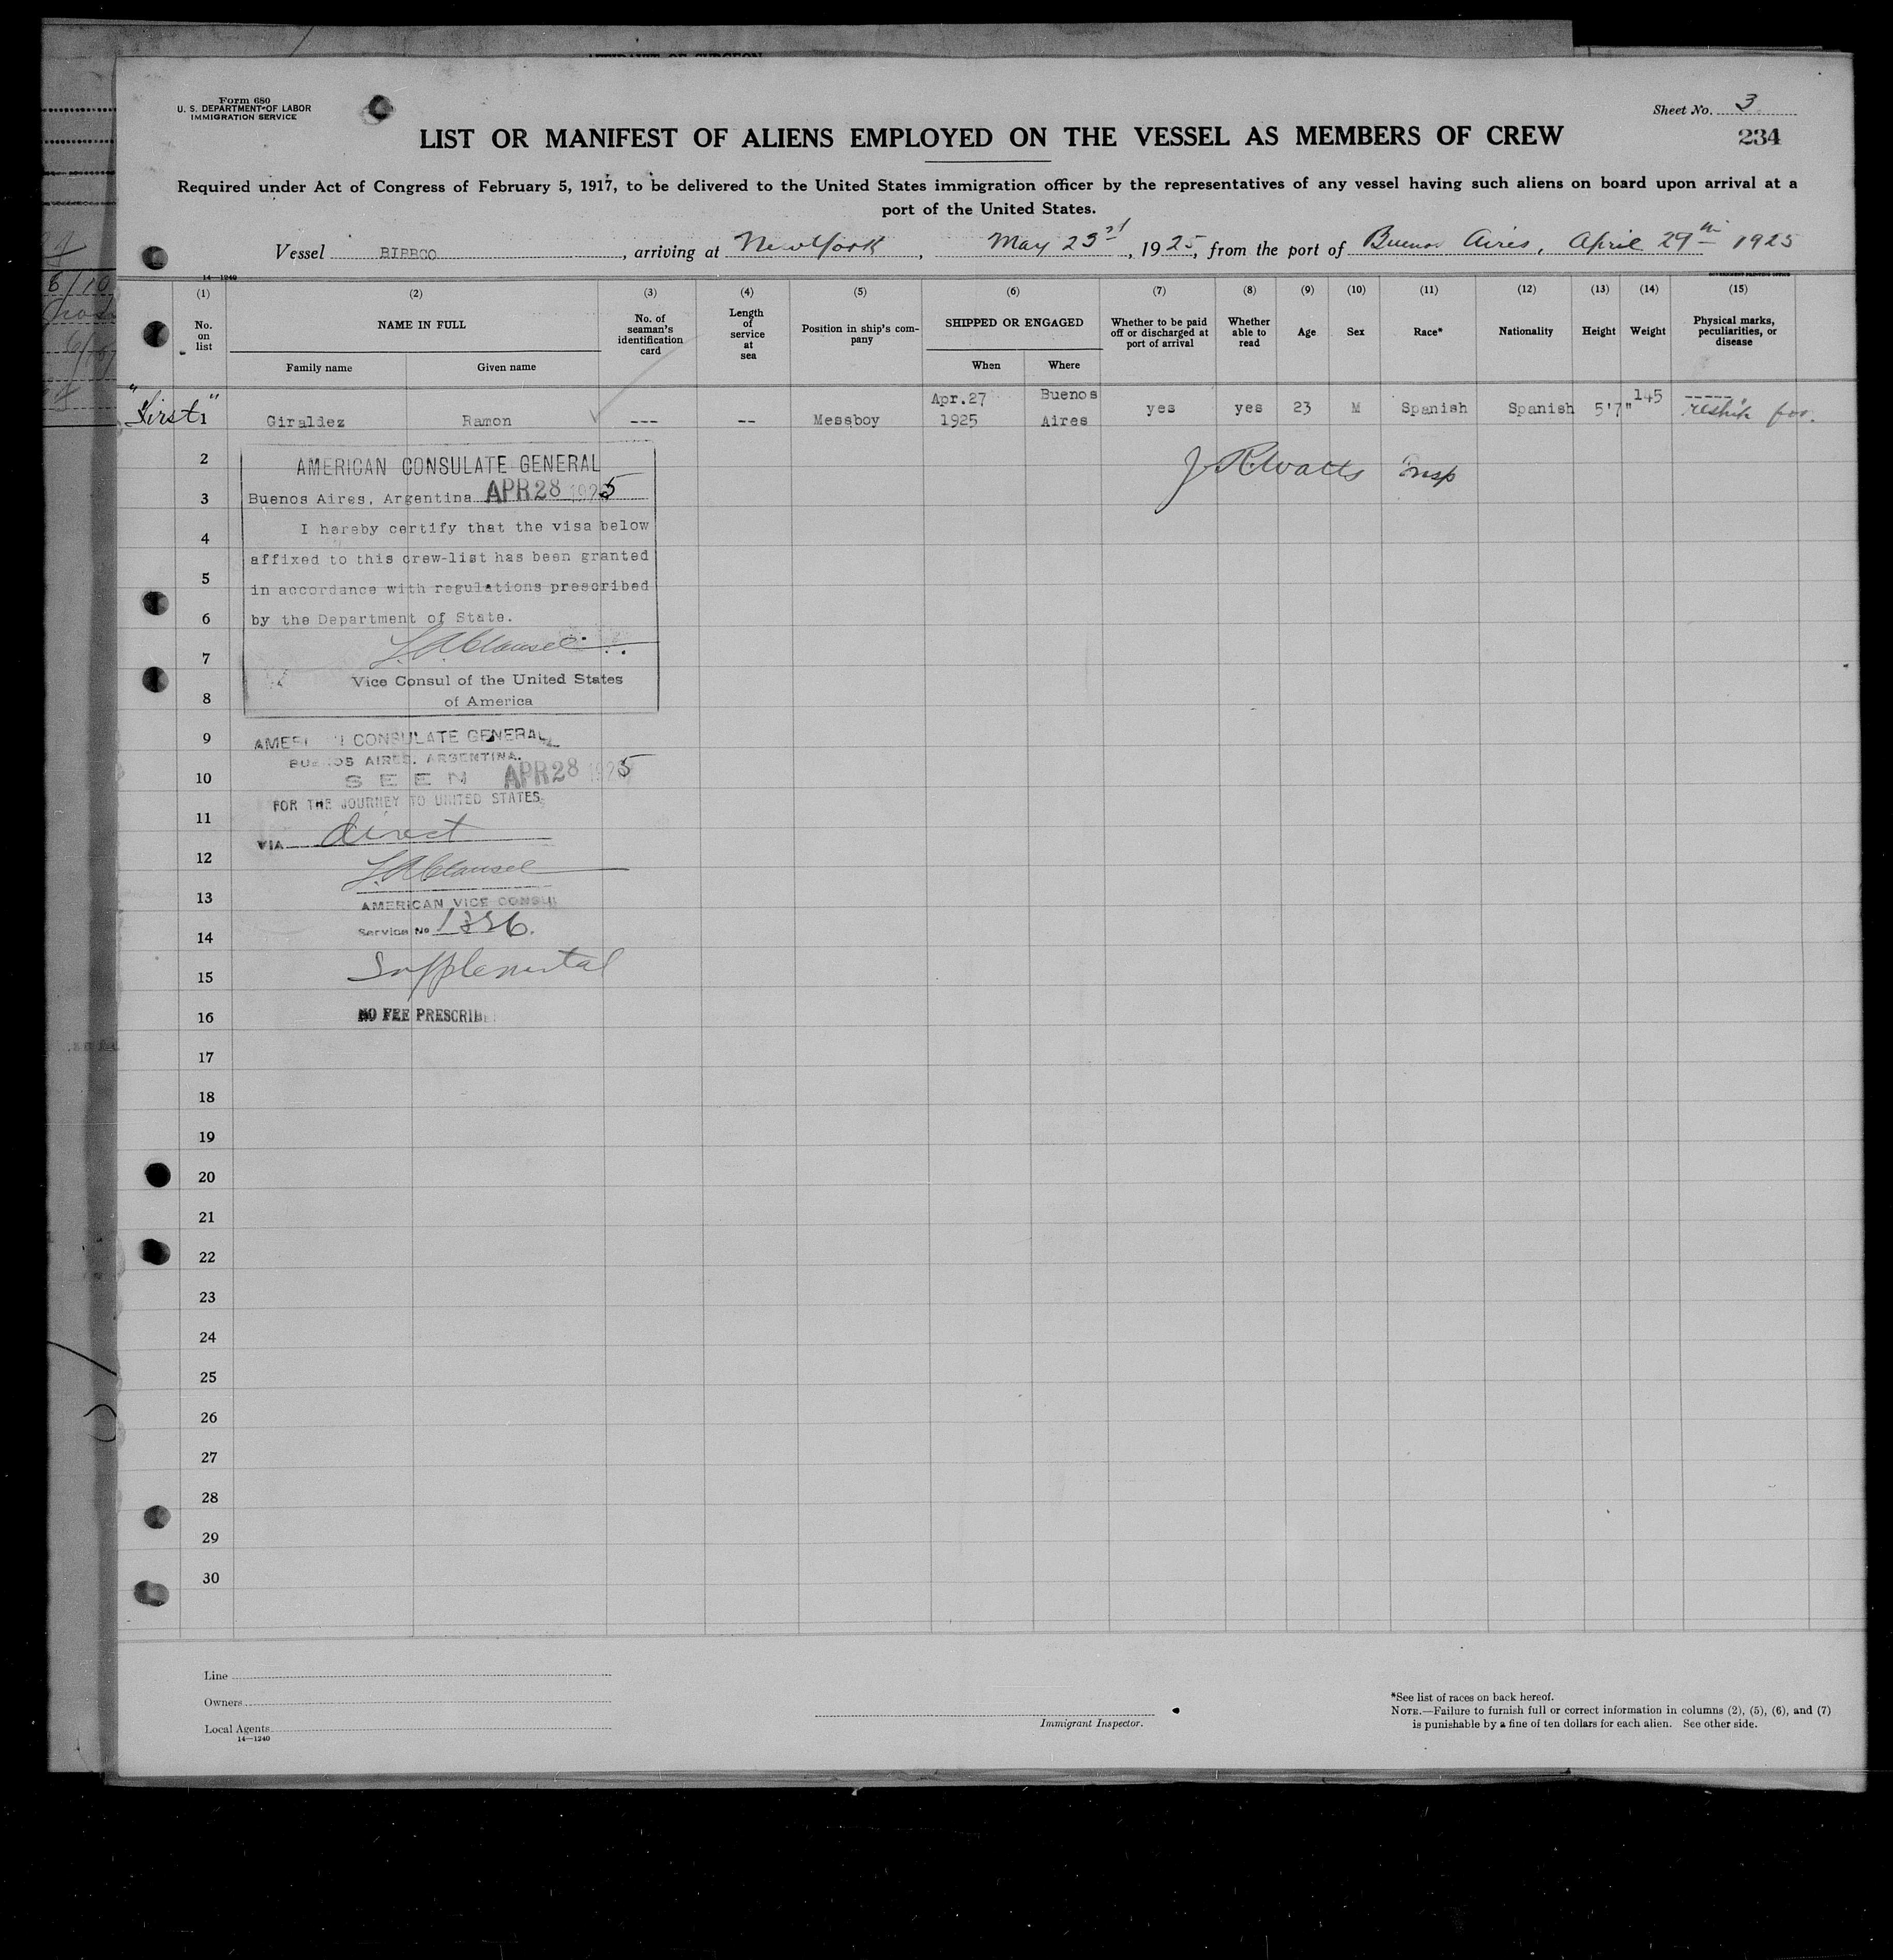 Form 680
U. S. DEPARTMENT OF LABOR
IMMIGRATION SERVICE
Sheet No. 3
234
LIST OR MANIFEST OF ALIENS EMPLOYED ON THE VESSEL AS MEMBERS OF CREW
Required under Act of Congress of February 5, 1917, to be delivered to the United States immigration officer by the representatives of any vessel having such aliens on board upon arrival at a
port of the United States.
Vessel BIBBCO, arriving at New York, May 23rd, 1925, from the port of Buenos Aires, April 29th 1925
14—1240
GOVERNMENT PRINTING OFFICE
(1) (2) (3) (4) (5) (6) (7) (8) (9) (10) (11) (12) (13) (14) (15)
No. on list
NAME IN FULL
Family name Given name
No. of seaman's identification card
Length of service at sea
Position in ship's com-pany
SHIPPED OR ENGAGED
When Where
Whether to be paid off or discharged at port of arrival
Whether able to read
Age
Sex
Race*
Nationality
Height
Weight
Physical marks, peculiarities, or disease
"First" 1 Giraldez Ramon --- -- Messboy Apr.27 1925 Buenos Aires yes yes 23 M Spanish Spanish 5'7" 145 ----- reship for.
J R Watts Insp
2
3
4
5
6
7
8
9
10
11
12
13
14
15
16
17
18
19
20
21
22
23
24
25
26
27
28
29
30
AMERICAN CONSULATE GENERAL
Buenos Aires, Argentina APR 28 1925
I hereby certify that the visa below
affixed to this crew-list has been granted
in accordance with regulations prescribed
by the Department of State.
Vice Consul of the United States
of America
CONSULATE GENERAL
BUENOS AIRES, ARGENTINA.
SEEN APR 28 1925
FOR THE JOURNEY TO UNITED STATES
VIA direct
AMERICAN VICE CONSUL
Service No
Supplemental
NO FEE PRESCRIBE
Line
Owners
Local Agents
14—1240
Immigrant Inspector.
*See list of races on back hereof.
NOTE.—Failure to furnish full or correct information in columns (2), (5), (6), and (7)
is punishable by a fine of ten dollars for each alien. See other side.